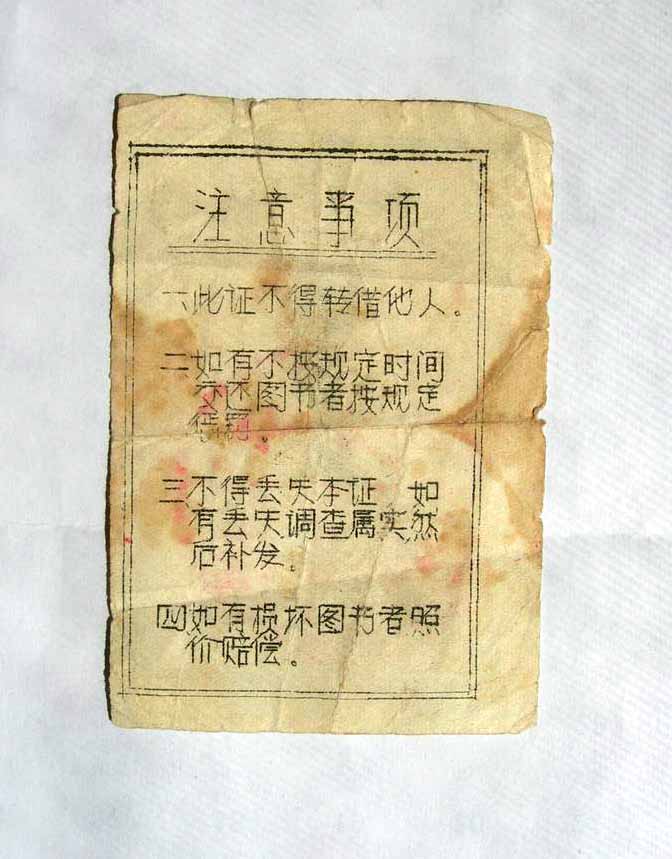 注意事项
一、此证不得转借他人。
二如有不按规定时间
交还图书者按规定
罚。
三不得丢失本证 如
有丢失调查属实然
后补发。
四如有损坏图书者照
价赔偿。